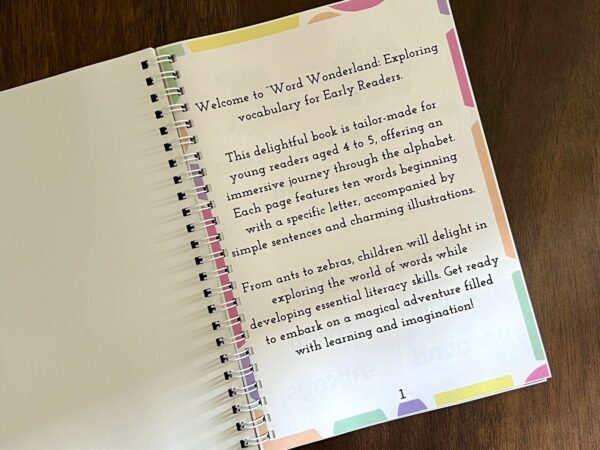 Welcome to 'Word Wonderland: Exploring
vocabulary for Early Readers.
This delightful book is tailor-made for
young readers aged 4 to 5, offering an
immersive journey through the alphabet.
Each page features ten words beginning
with a specific letter, accompanied by
simple sentences and charming illustrations.
From ants to zebras, children will delight in
exploring the world of words while
developing essential literacy skills. Get ready
to embark on a magical adventure filled
with learning and imagination!
1